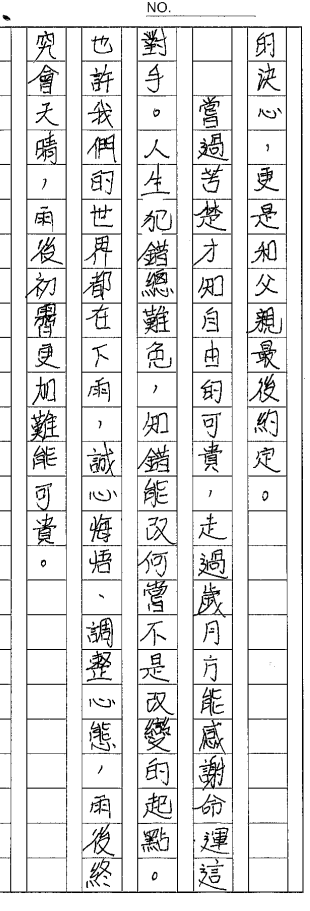 NO.
的決心，更是和父親最後約定。
嘗過苦楚才知自由的可貴，走過歲月方能感謝命運這
對手。人生犯錯總難免，知錯能改何嘗不是改變的起點。
也許我們的世界都在下雨，誠心悔悟、調整心態，雨後終
究會天晴，雨後初霽更加難能可貴。